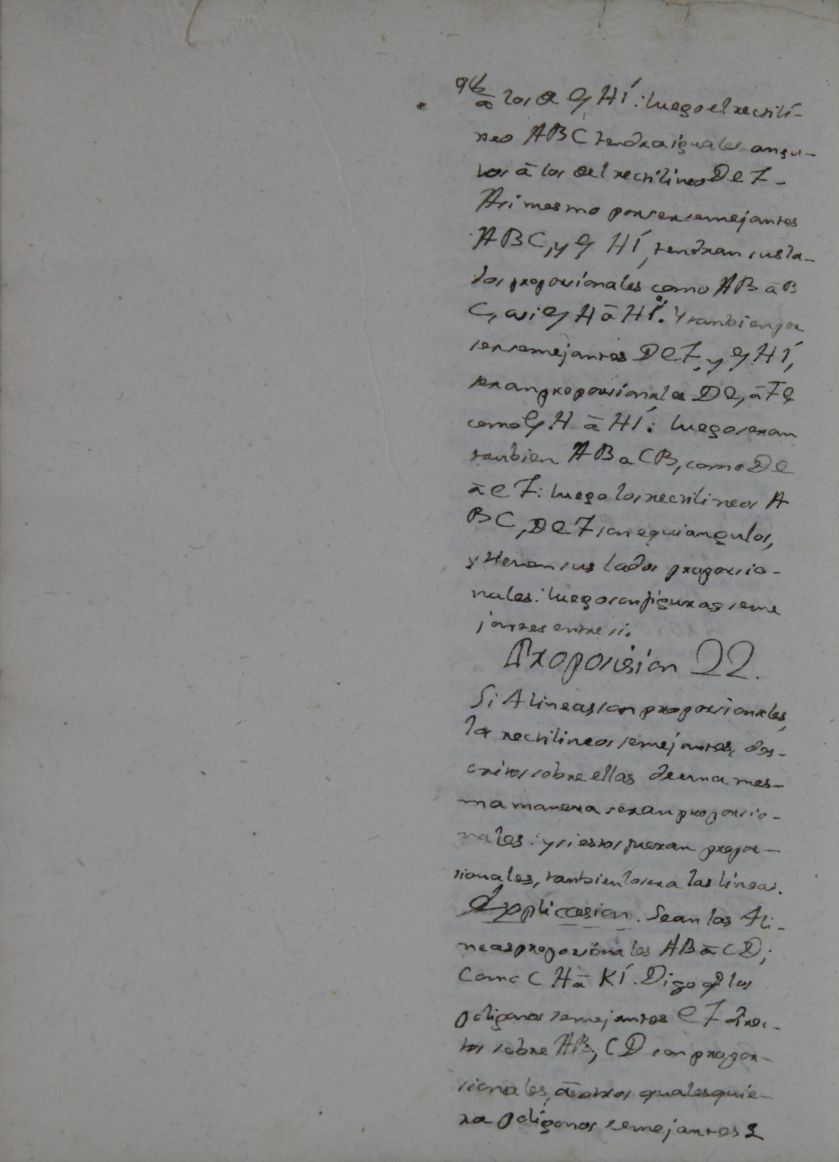 à los de G HÍ: luego el rectilí-
neo ABC tendra iguales angu-
los à los del rectilineo DeF-
Asimesmo por ser semejantes
ABC, y G HÍ, tendran sus la-
dos proporsionales como AB à B
C, asi G H à HÍ. Y tambien por
ser semejantes DeF, y G HÍ,
seran proporsionales De, à Fe
como G H à HÍ: luego seran
tanbien AB a CB, como De
à eF: luego los rectilineos A
BC, DeF son equiangulos,
y tienen sus lados proporsio-
nales: luego son figuras seme
jantes entre si.
Proporsision 22.
Si 4 lineas son proporsionales,
los rectilineos semejantes, des-
critos sobre ellas de una mes-
ma manera seran proporsio-
nales: y si estos fueran propor-
sionales, tanbien lo sera las lineas.
Explicasion. Sean las 4 li-
neas proporsionales AB à CD;
Como C H à KÍ. Digo q los
poligonos semejantes e F descri-
tos sobre AB, CD son propor-
sionales, à otros qualesquie-
ra poligonos semejantes